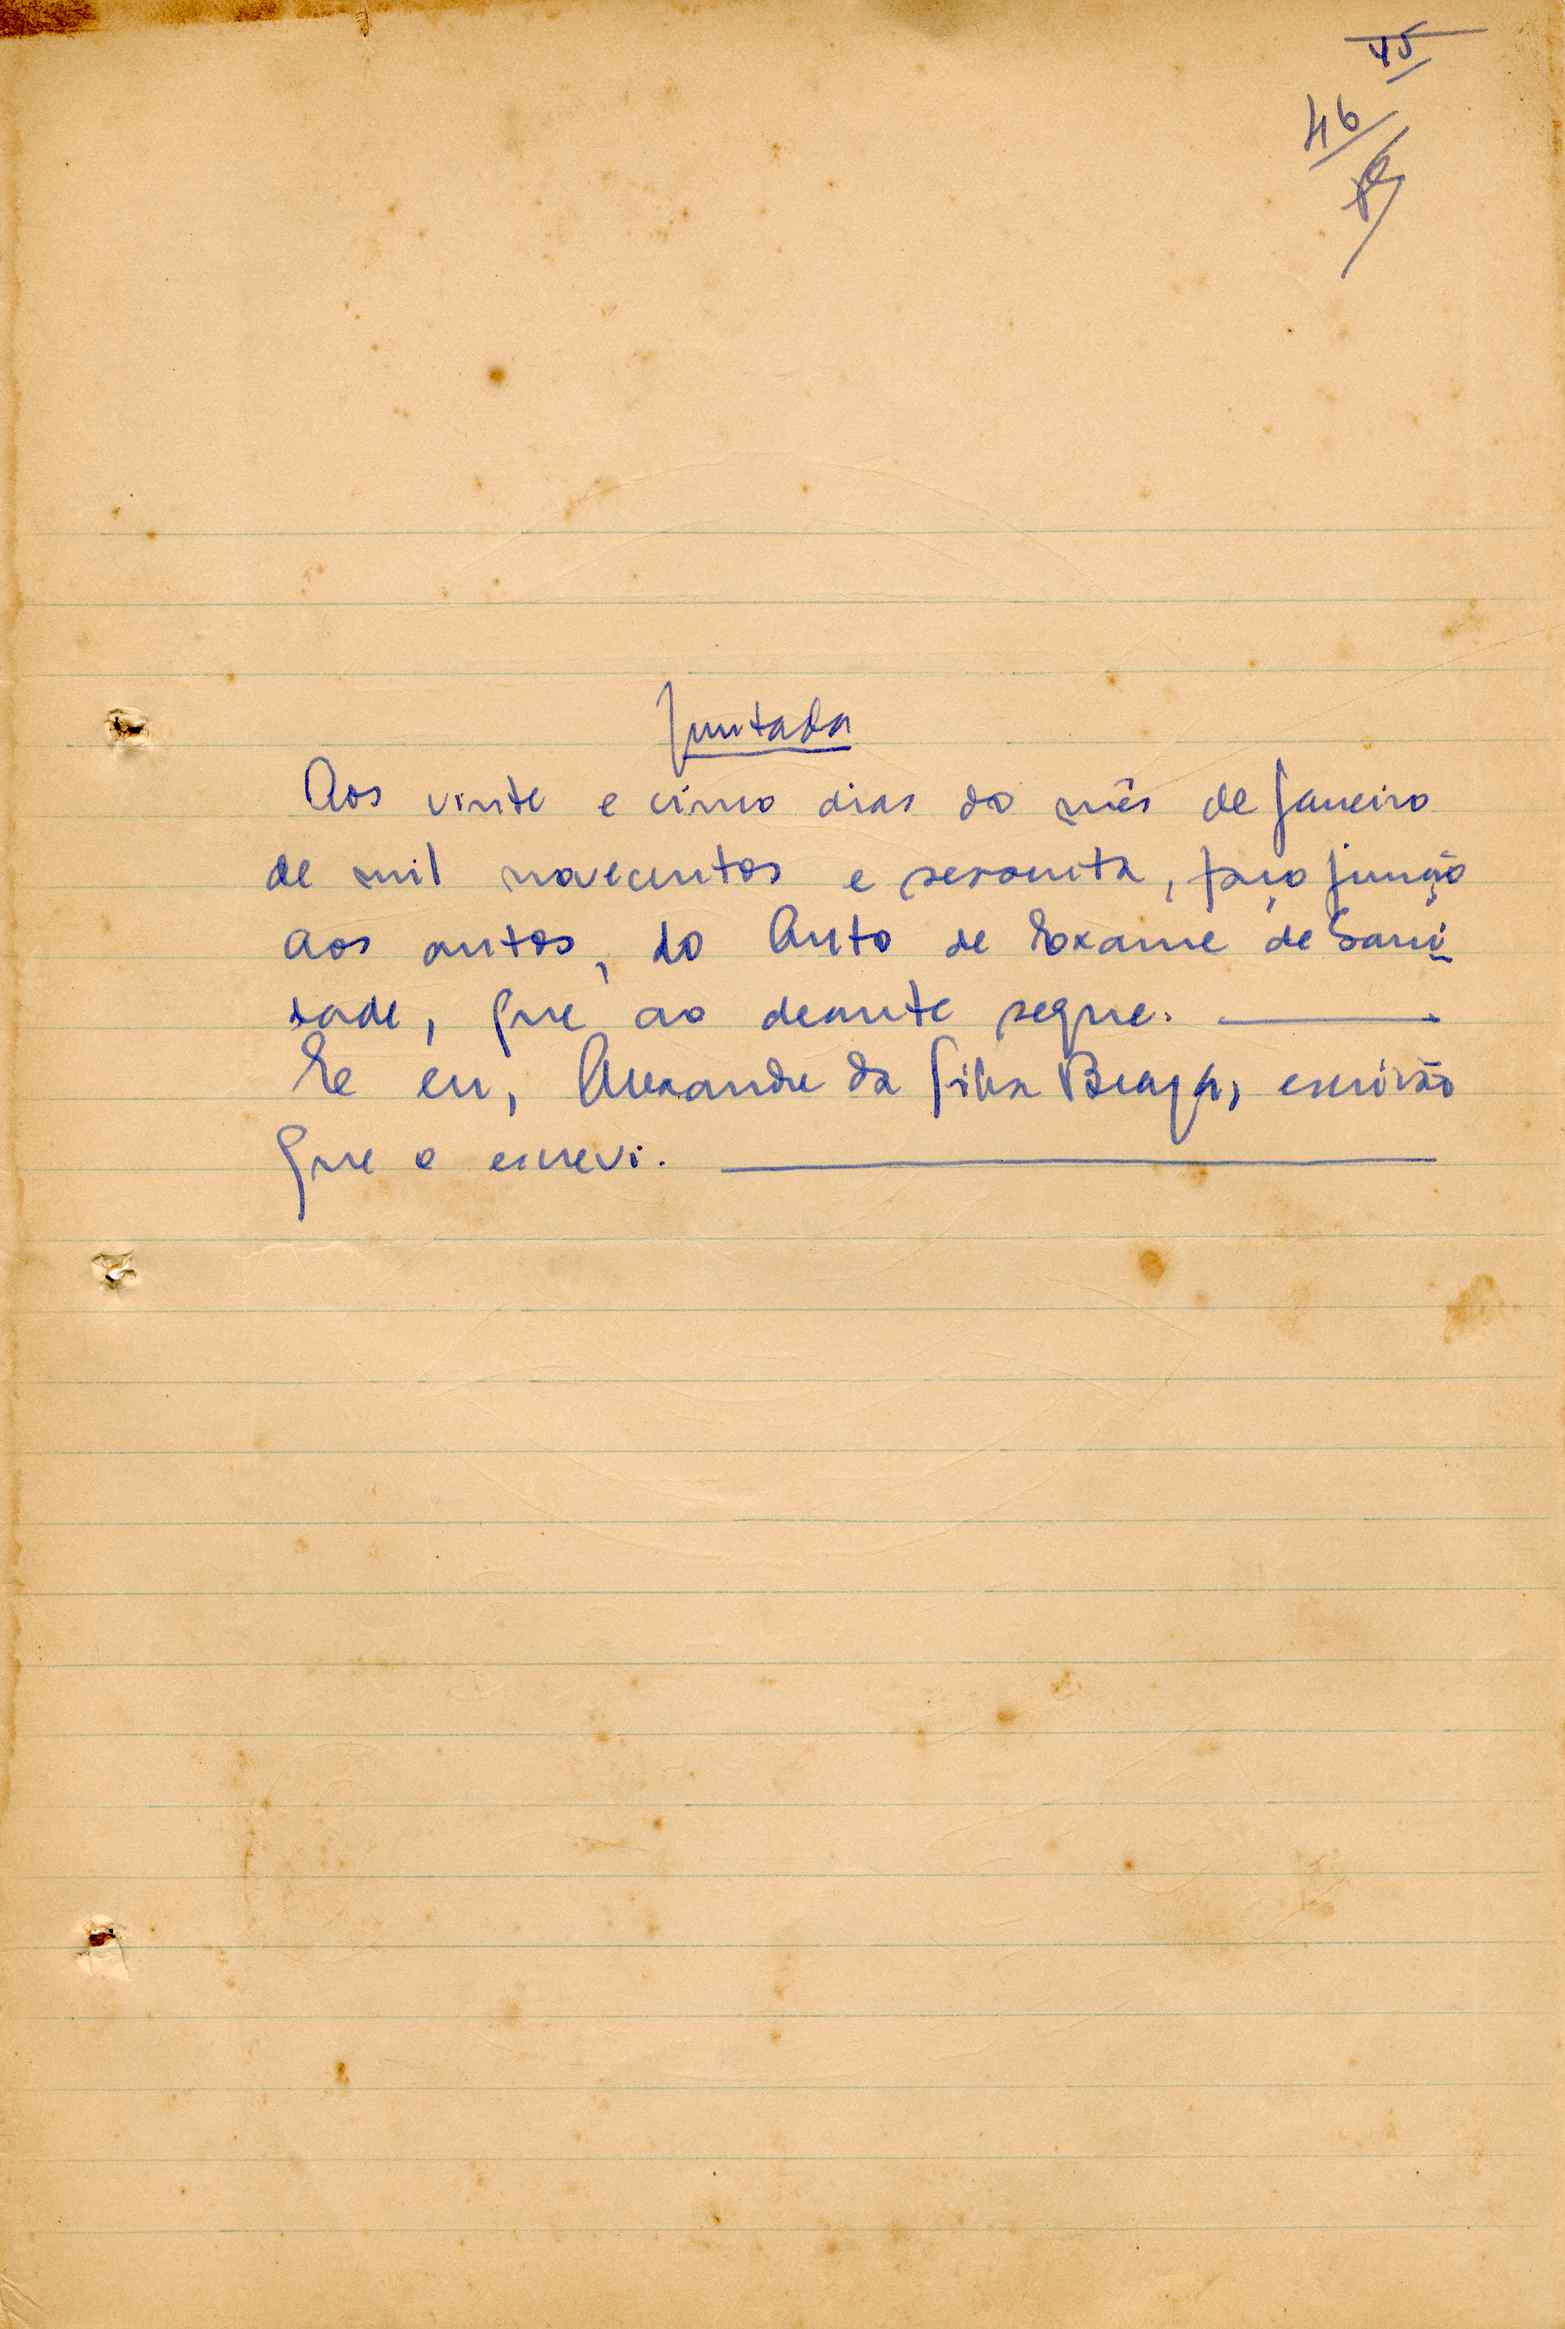 45
46
Juntada
Aos vinte e cinco dias do mês de Janeiro
de mil novecentos e sessenta, faço junção
aos autos, do Auto de Exame de Sani
dade, que ao deante segue.
E eu, Alexandre da Silva Braga, escrivão
que o escrevi.